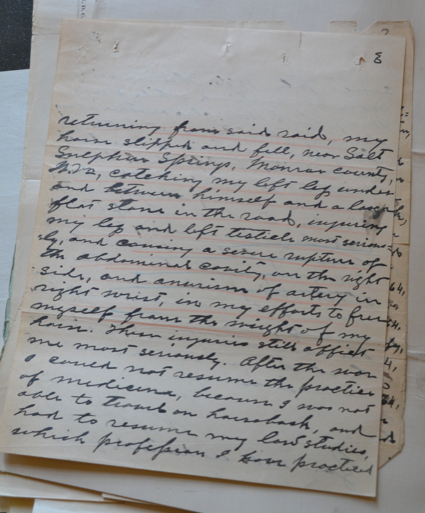 8
returning from said raid, my
horse slipped and fell, near Salt
Sulphur Springs, Monroe County,
W.Va, catching my left leg under
and between himself and a large
flat stone in the road, injuring
my leg and left testicle most serious-
ly, and causing a severe rupture of
the abdominal cavity, on the right
side, and aneurism of artery in
right wrist, in my efforts to free
myself from the weight of my
horse. These injuries still afflict
me most seriously. After the war
I could not resume the practice
of medicine, because I was not
able to travel on horseback, and
had to resume my law studies,
which profession I have practiced